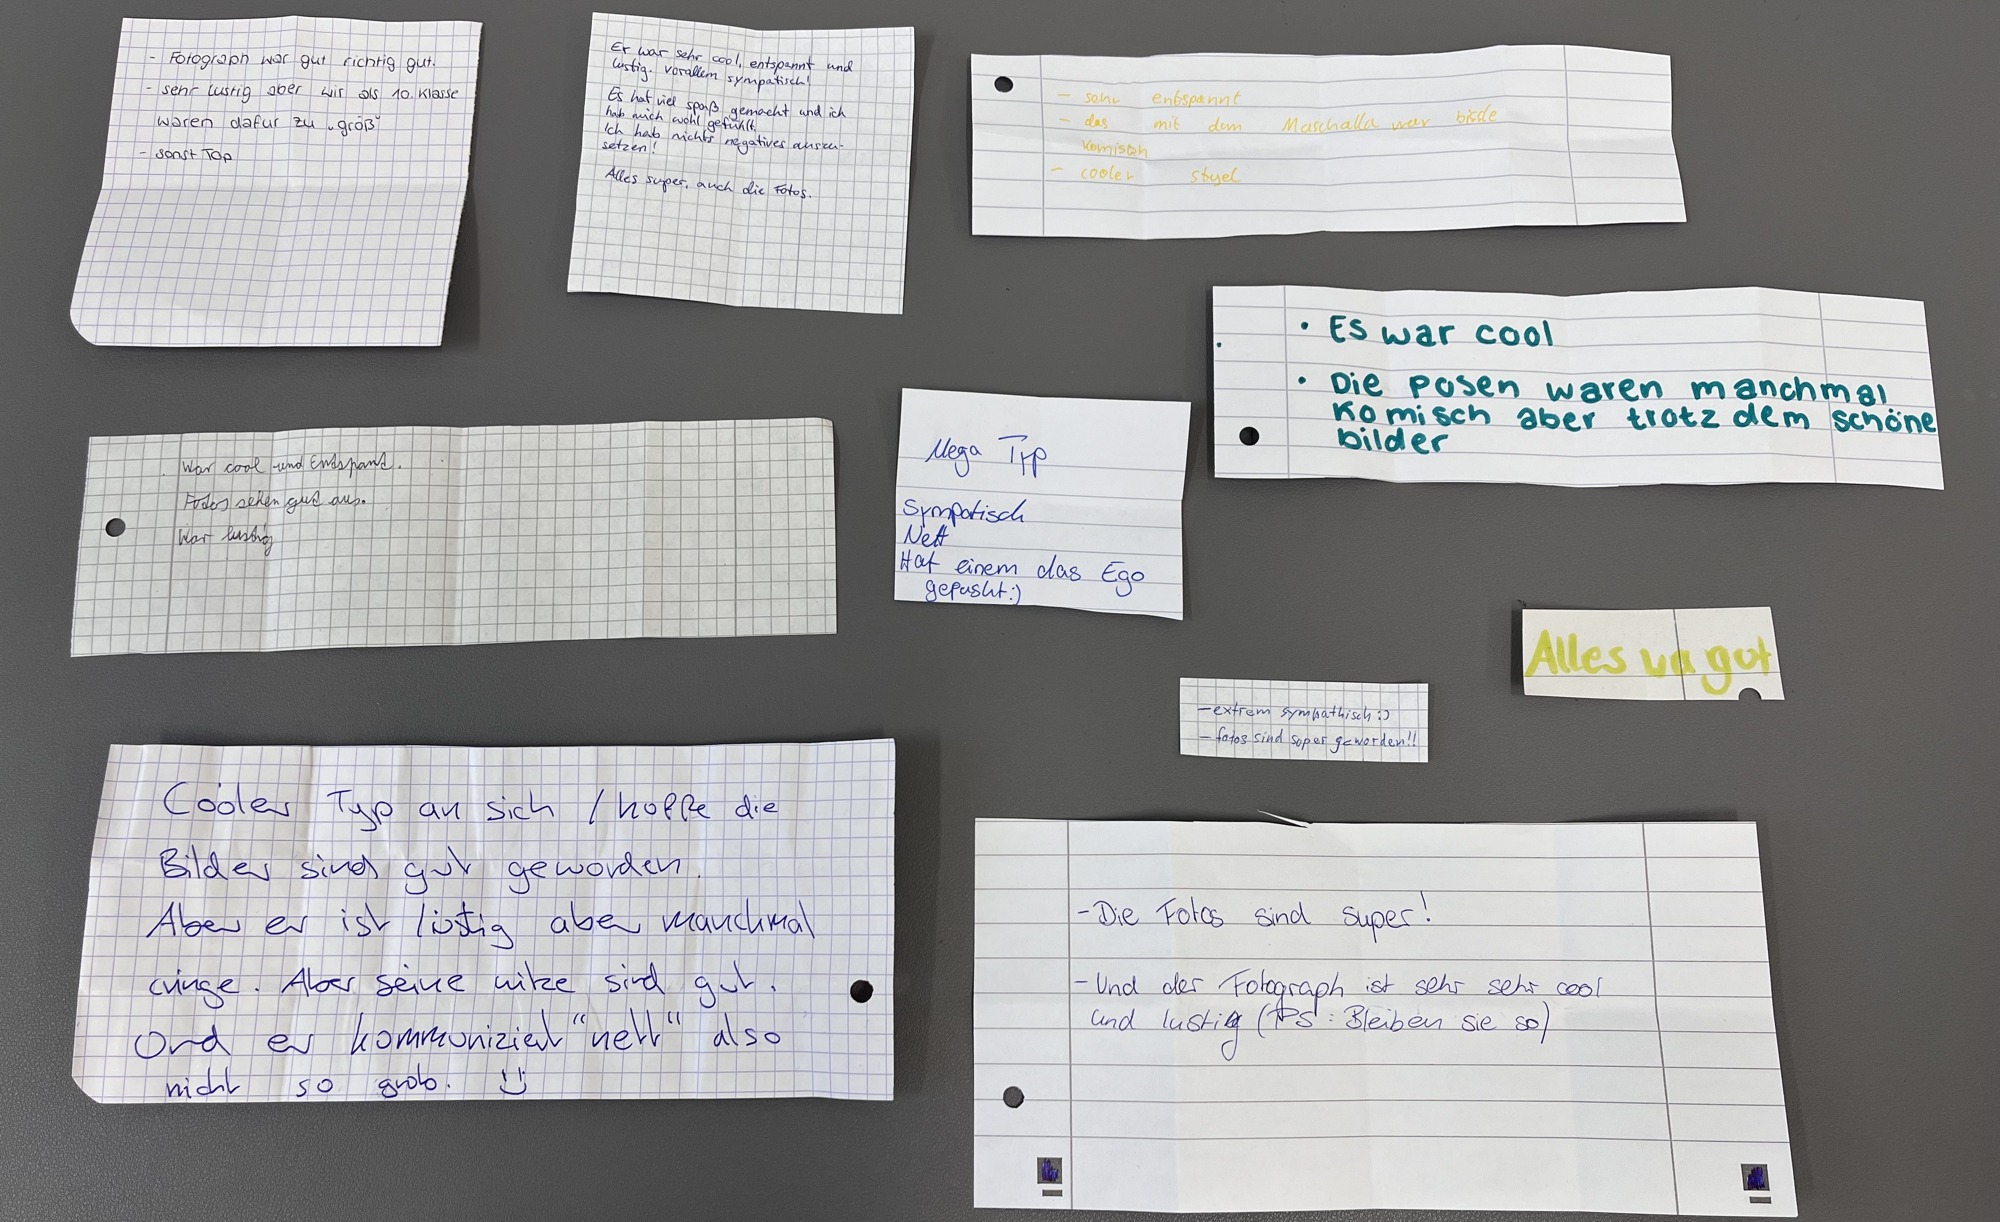 - Fotograph war gut richtig gut.
- sehr lustig aber wir als 10. Klasse
waren dafur zu „größ"
- sonst Top
Er war sehr cool, entspannt und
lustig. vorallem sympatisch!
Es hat viel spaß gemacht und ich
hab mich wohl gefühlt.
Ich hab nichts negatives auszu-
setzen!
Alles super, auch die Fotos.
- sehr entspannt
- das mit dem Maschalla war bisde
komisch
- cooler styel
• Es war cool
• Die posen waren manchmal
komisch aber trotz dem schöne
bilder
War cool und Entspant.
Fotos sehen gut aus.
War lustig
Mega Typ
Sympatisch
Nett
Hat einem das Ego
gepusht:)
Alles wa gut
- extrem sympathisch :)
- fotos sind super geworden!!
Cooler Typ an sich / hoffe die
Bilder sind gut geworden.
Aber er ist lustig aber manchmal
cringe. Aber seine witze sind gut.
Und er kommuniziert "nett" also
nicht so grob. :)
- Die Fotos sind super!
- Und der Fotograph ist sehr sehr cool
und lustig (PS: Bleiben sie so)